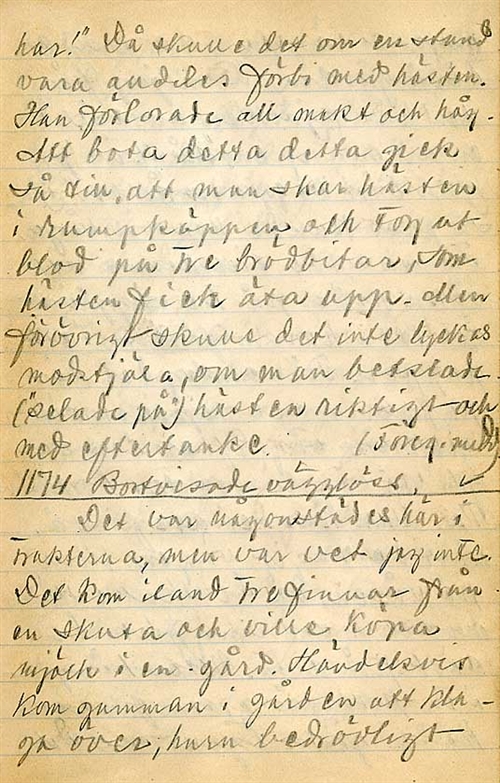 8
har!" Då skulle det om en stund
vara alldeles förbi med hästen.
Han förlorade all makt och håg.
Att bota detta detta gick
så till, att man skar hästen
i rumpkäppen och tog ut
blod på tre brödbitar, som
hästen fick äta upp. Men
förövrigt skulle det inte lyckas
modstjäla, om man betslade
("selade på") hästen riktigt och
med eftertanke. (Föreg. medd.)
1174 Bortvisade vägglöss. ✓
Det var någonstädes här i
trakterna, men var vet jag inte.
Det kom iland tre finnar från
en skuta och ville köpa
mjölk i en gård. Händelsvis
kom gumman i gården att kla-
ga över, huru bedrövligt